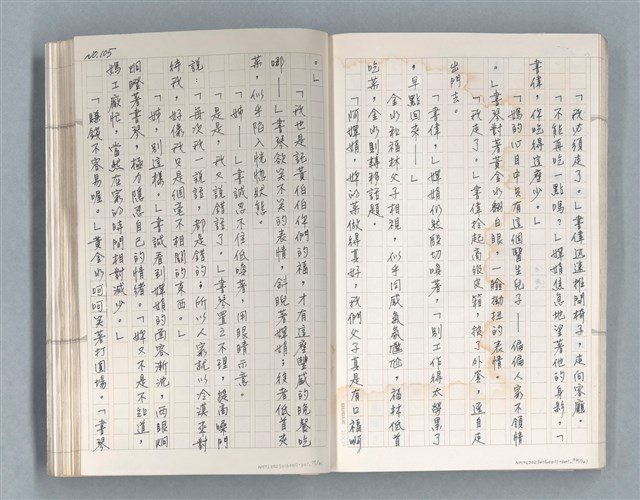 「我必須走了。」書偉迅速推開椅子，走向客廳。
「不能再吃一點嗎？」嬋娟焦急地望著他的身影，「
書偉，你吃得這麼少。」
「媽的心目中只有這個醫生兒子——偏偏人家不領情
。」書琴對著黃金水翻白眼，一臉抝扭的表情。
「我走了。」書偉拾起高級皮箱，披了外套，逕自走
出門去。
「書偉，」嬋娟仍然殷切喚著，「別工作得太勞累了
，早點回來——」
金水和福林父子相視，似乎同感氣氛尷尬，福林低首
吃菜，金水則轉移話題。
「阿嬋娟，妳的菜做得真好，我們父子真是有口福啊
。」
「我也是託黃伯伯你們的福，才有這麼豐盛的晚餐吃
哪——」書琴欲笑不笑的表情，斜睨著嬋娟；後者低首夾
菜，似乎陷入恍惚狀態。
「姊——」書誠忍不住低喚著，用眼睛示意。
「是是，我又說錯話了。」書琴置之不理，提高嗓門
說：「每次我一說話，都是錯的；所以人家就以冷漠來對
待我，好像我只是個毫不相關的東西。」
「姊，別這樣。」書誠看到嬋娟的面容漸沈，兩眼炯
炯瞪著書琴，極力隱忍自己的情緒。「妳又不是不知道，
媽工廠忙，當然在家的時間相對減少。」
「賺錢不容易喔。」黃金水呵呵笑著打圓場。「書琴
NO. 105